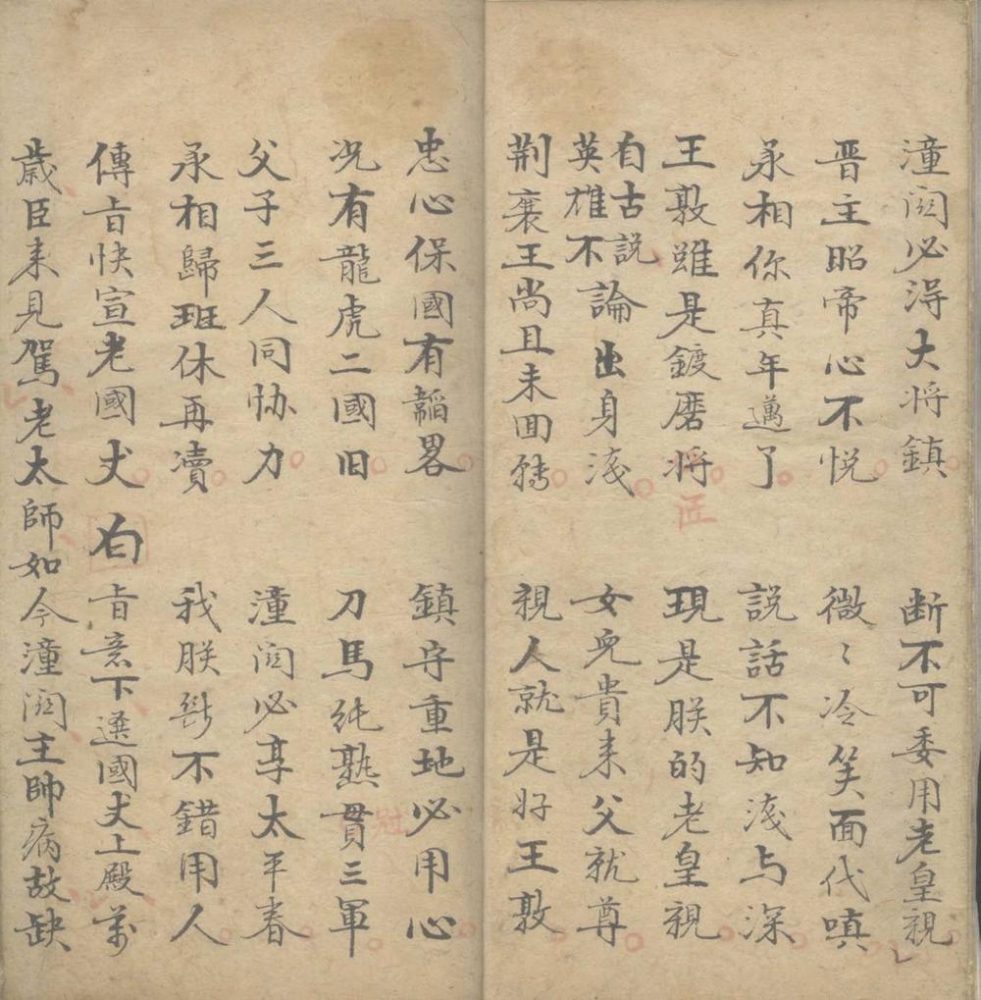 潼関必得大将鎮 断不可委用老皇親
晋主昭帝心不悦 微〻冷笑面代嗔
承相你真年邁了 説話不知浅与深
王敦雖是鍍磨将 匠 現是朕的老皇親
自古説英雄不論出身浅 女児貴来父就尊
荆襄王尚且未回轉 親人就是好王敦
忠心保國有韜畧 鎮守重地必用心
况有龍虎二國旧 刀馬純熟貫三軍 冠
父子三人同协力 潼関必享太平春
承相歸班休再凟 我朕断不錯用人
傳旨快宣老國丈 白 旨意下選國丈上殿萬
歳臣来見駕老太師如今潼関主帥病故缺